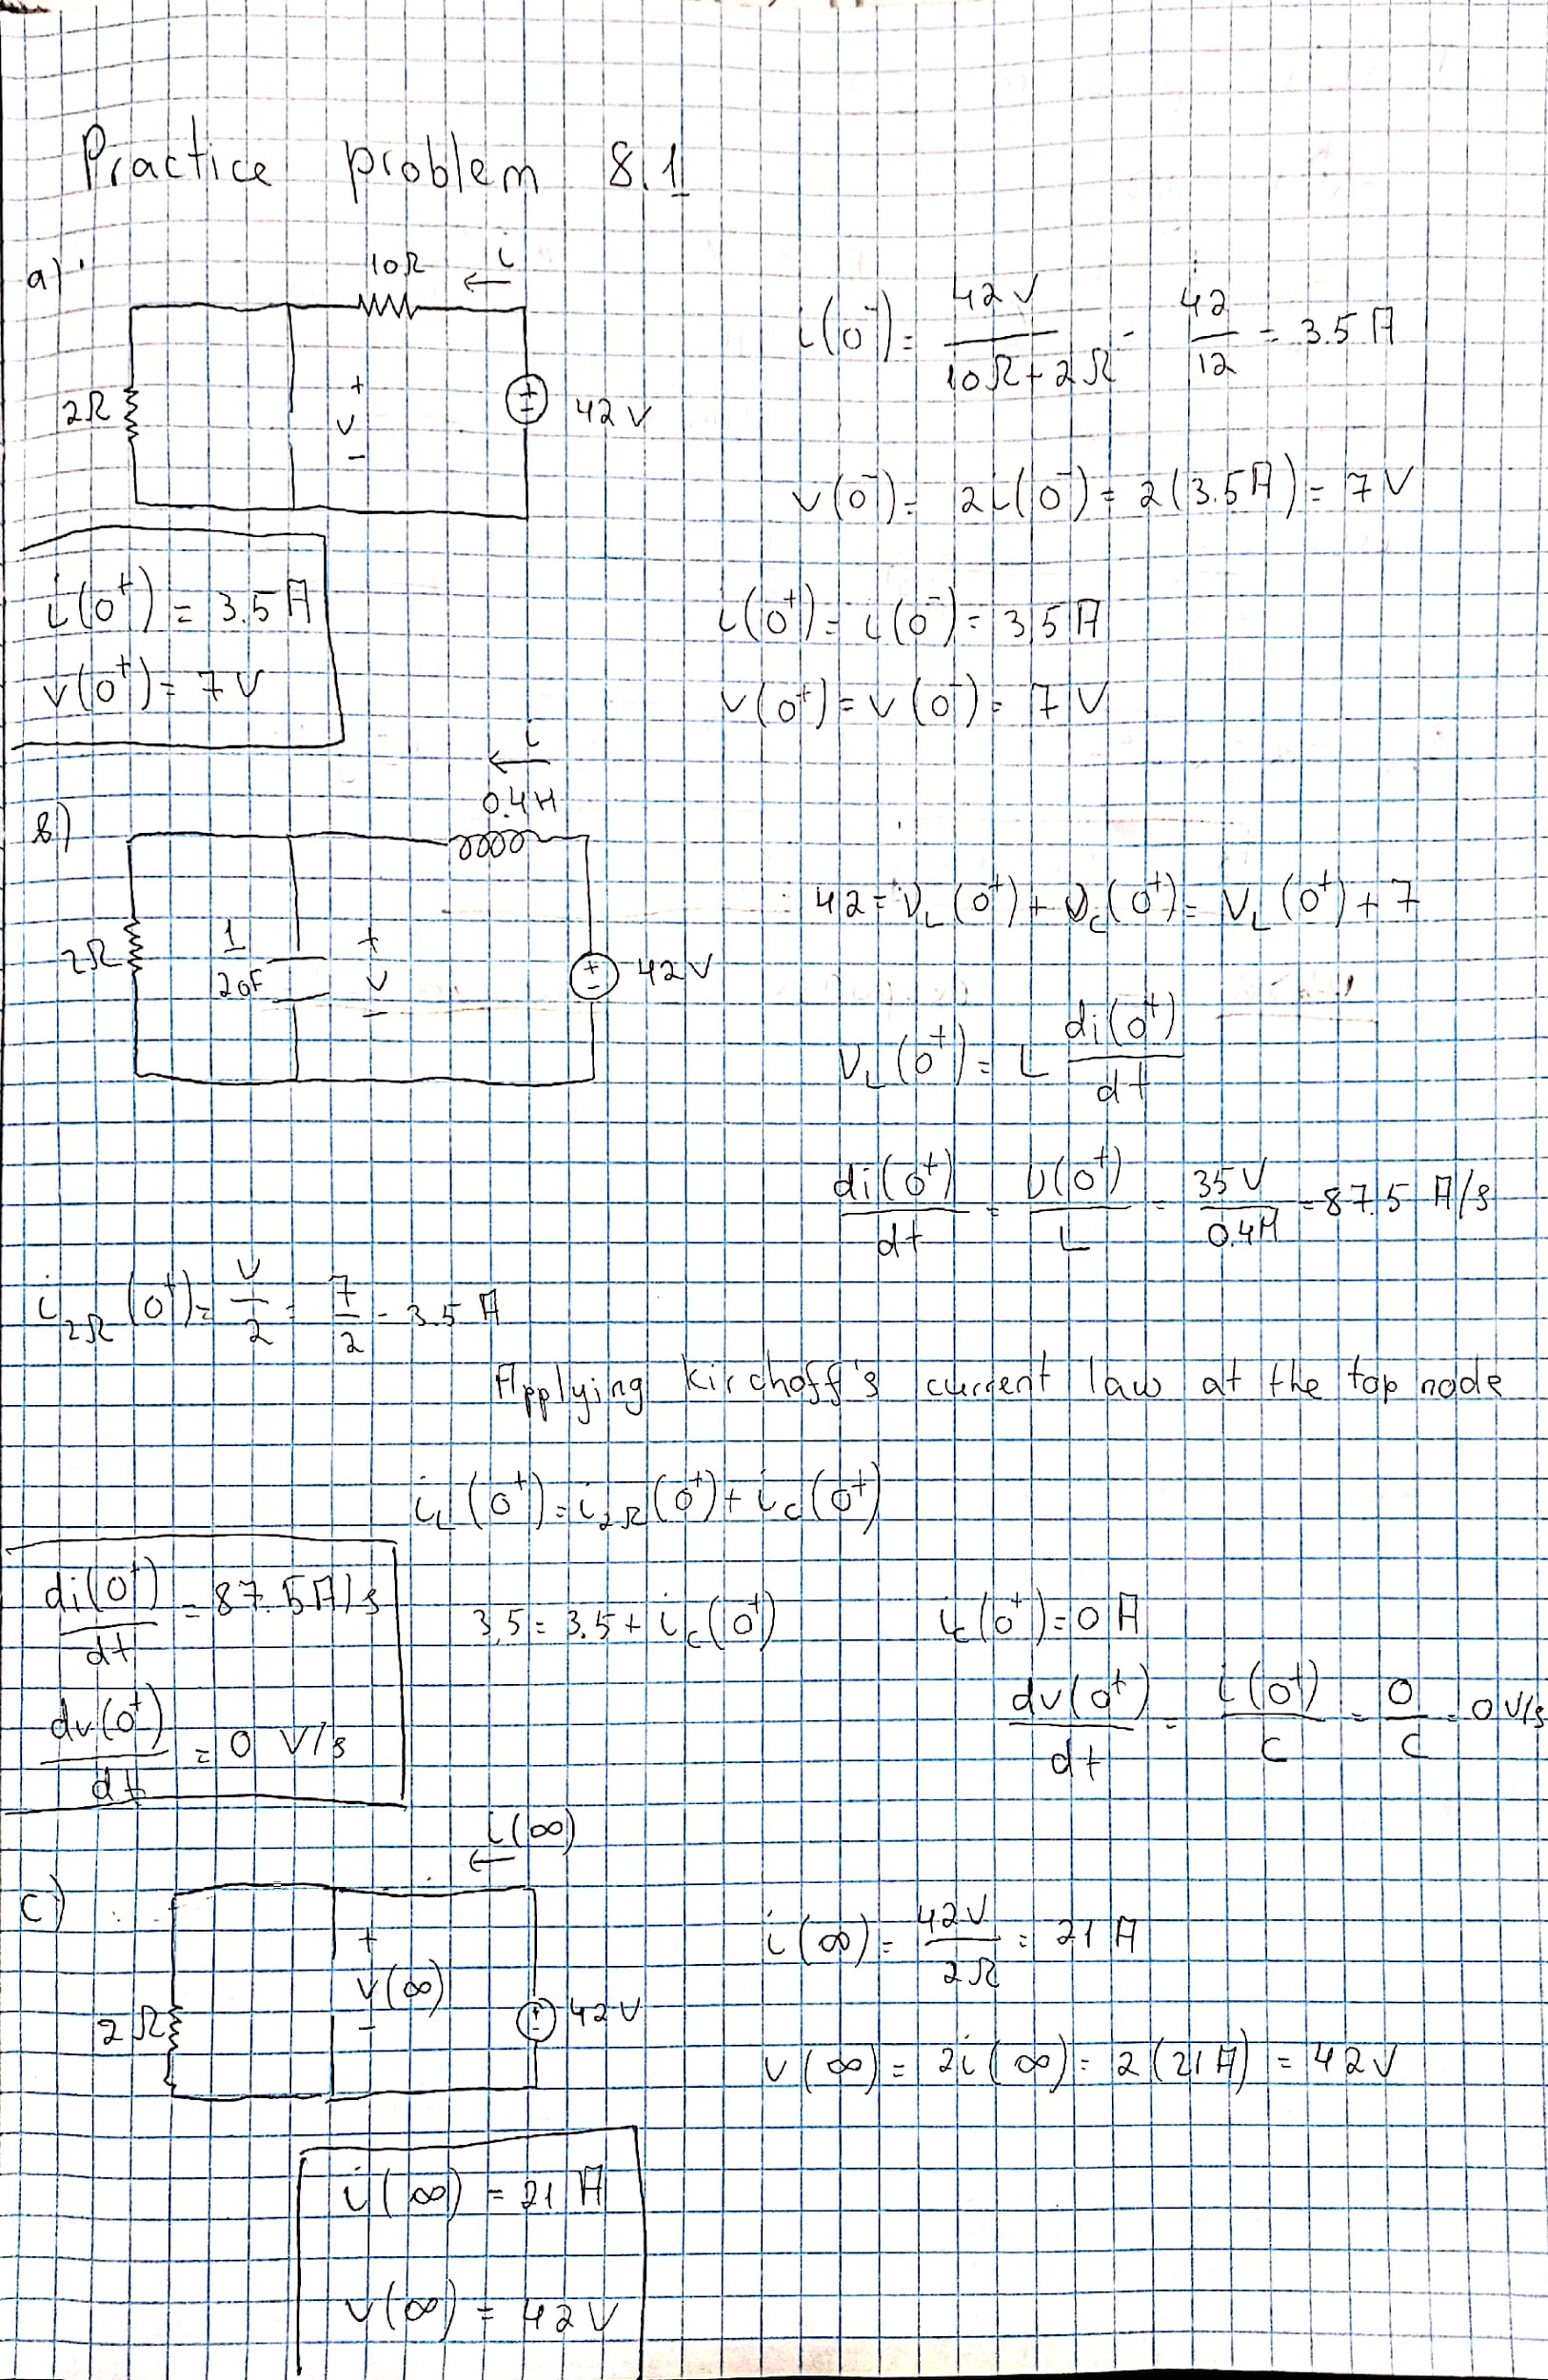 Practice problem 8.1
a)
10Ω
i
2Ω
+
v
-
42 V
i(0⁻) = 42 V / (10Ω + 2Ω) = 42 / 12 = 3.5 A
v(0⁻) = 2i(0⁻) = 2(3.5A) = 7 V
i(0⁺) = 3.5 A
v(0⁺) = 7 V
i(0⁺) = i(0⁻) = 3,5 A
v(0⁺) = v(0⁻) = 7 V
в)
i
0.4H
2Ω
1 / 20F
+
v
-
42 V
42 = v_L(0⁺) + v_c(0⁺) = v_L(0⁺) + 7
v_L(0⁺) = L di(0⁺) / dt
di(0⁺) / dt = v(0⁺) / L = 35 V / 0.4H = 87.5 A/s
i_2Ω(0⁺) = v / 2 = 7 / 2 = 3.5 A
Applying Kirchoff's current law at the top node
i_L(0⁺) = i_2Ω(0⁺) + i_c(0⁺)
di(0⁺) / dt = 87.5 A/s
dv(0⁺) / dt = 0 V/s
3,5 = 3.5 + i_c(0⁺)
i_c(0⁺) = 0 A
dv(0⁺) / dt = i(0⁺) / C = 0 / C = 0 V/s
c)
i(∞)
2Ω
+
v(∞)
-
42 V
i(∞) = 42V / 2Ω = 21 A
v(∞) = 2i(∞) = 2(21A) = 42 V
i(∞) = 21 A
v(∞) = 42 V